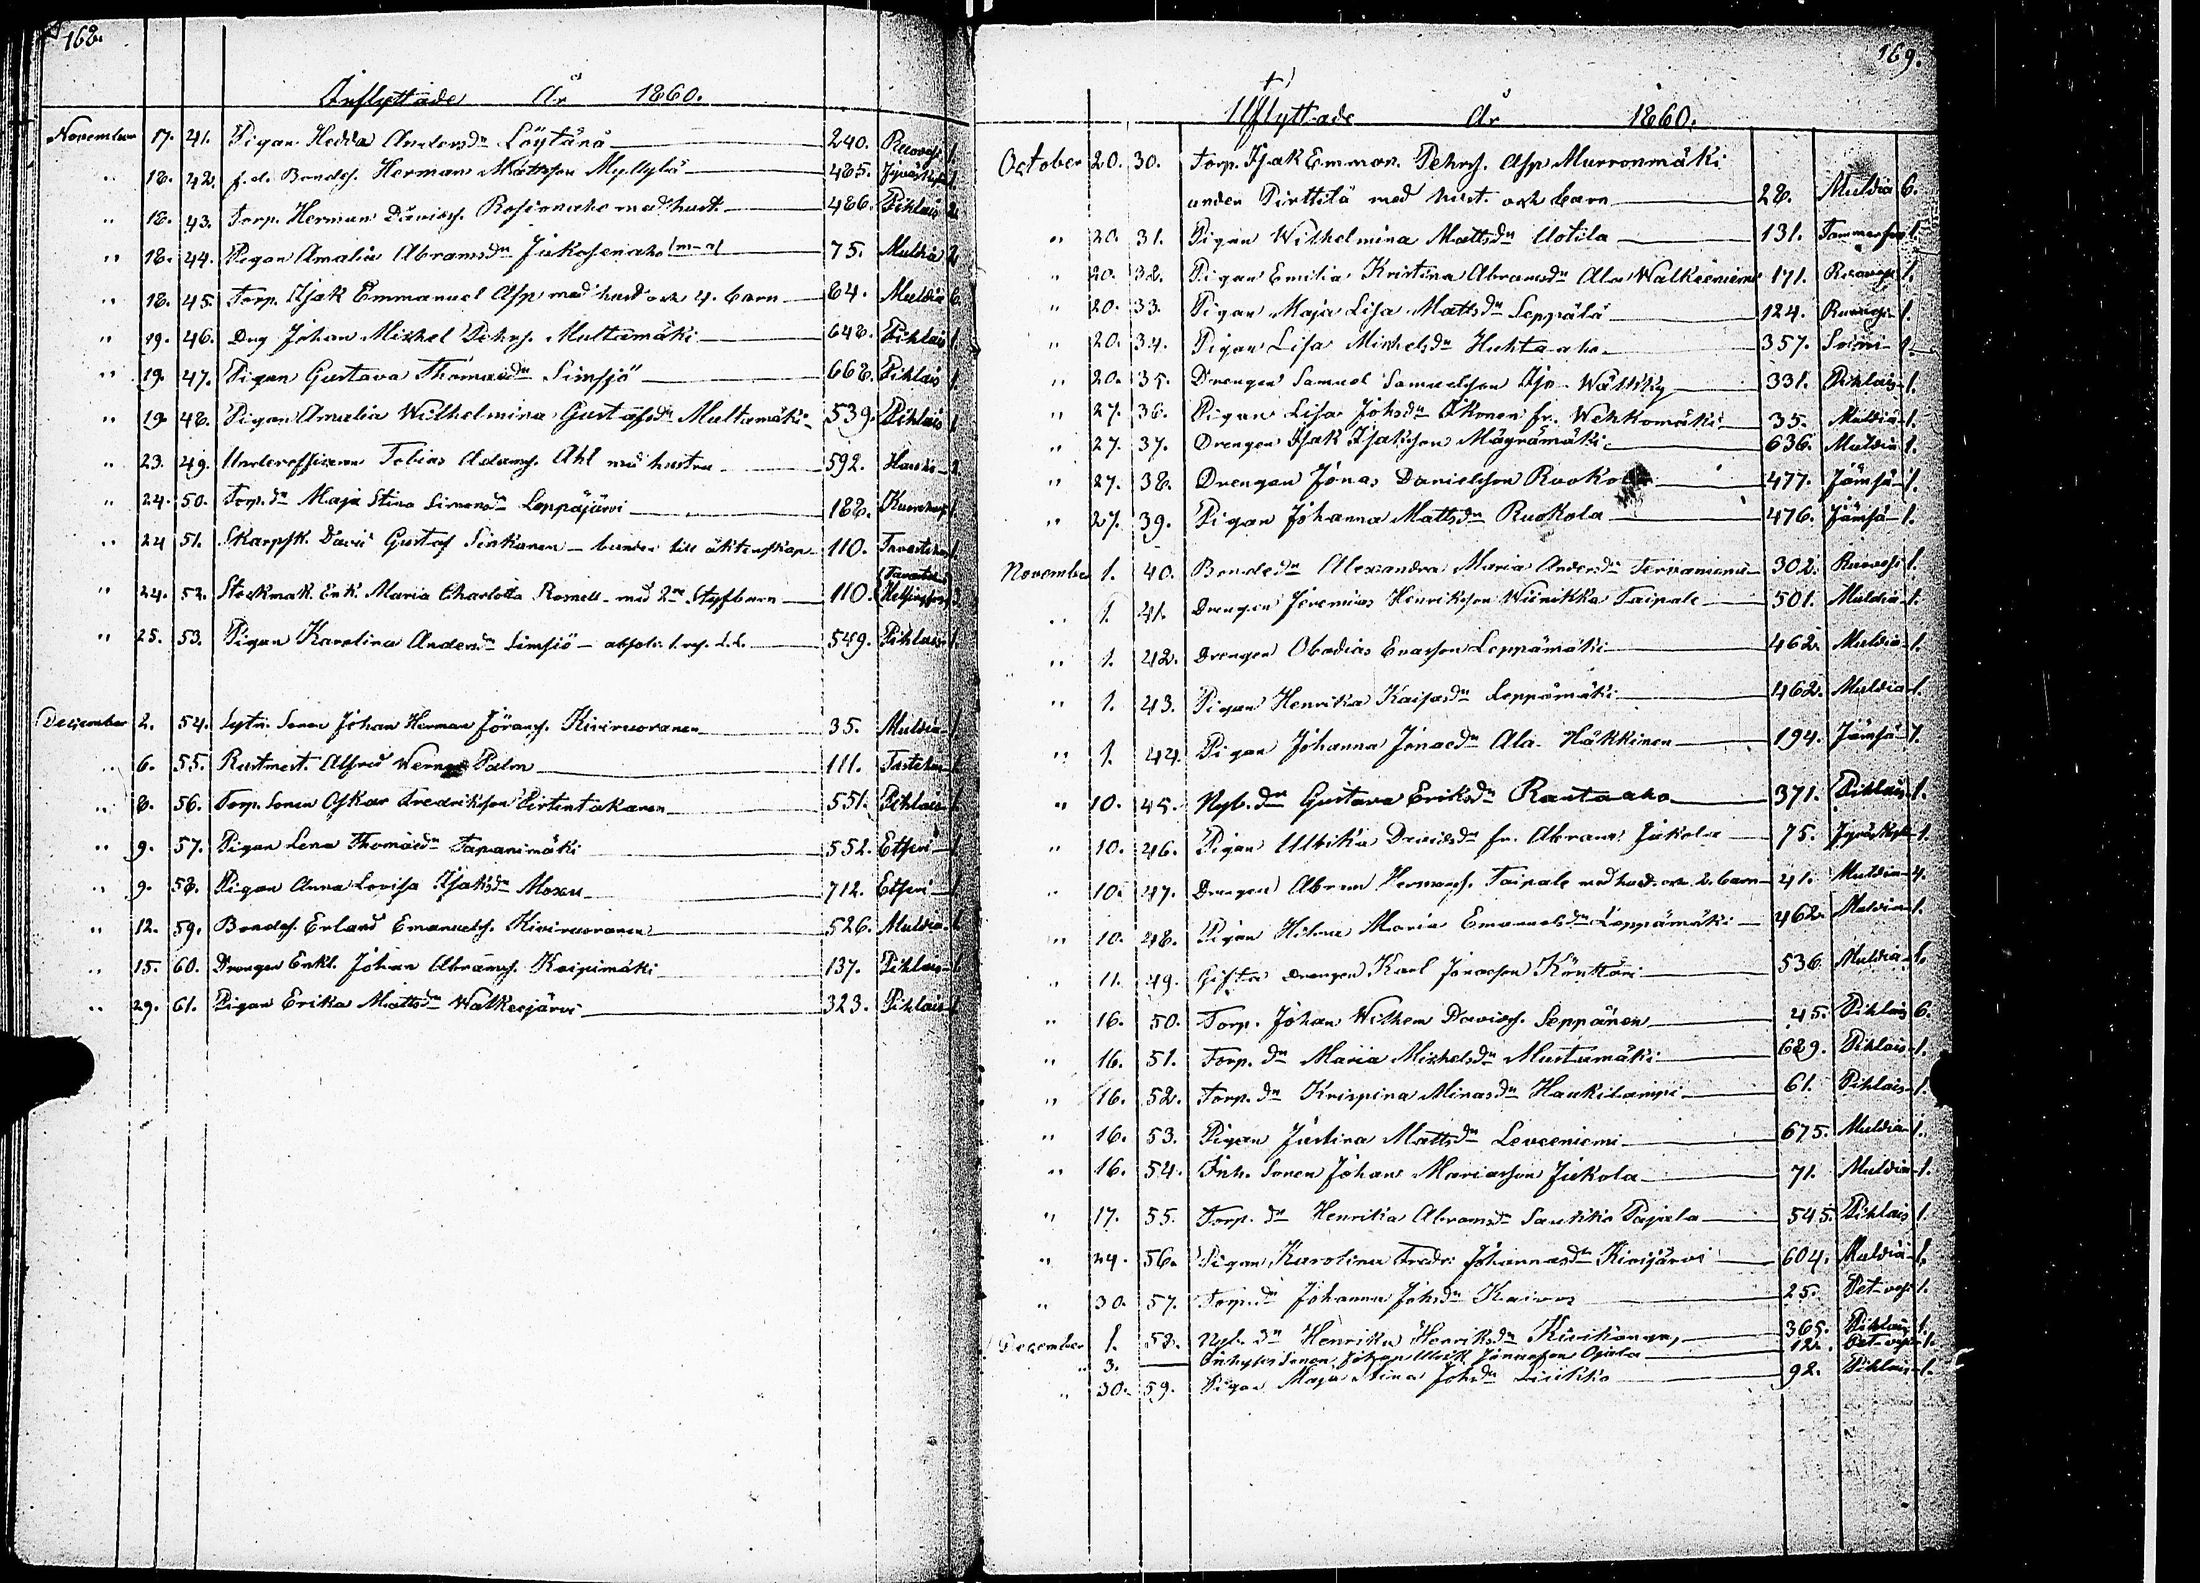 168.
Inflyttade År 1860.
November 17. 41. Pigan Hedda Andersdr Löytänä 240. Ruoves. 1.
" 18. 42. f.d. Bondes. Herman Mattsson Myllylä 485. Jyväskylä 1.
" 18. 43. Torp. Herman Davids. Rosionaho med hust. 486. Pihlais 2.
" 18. 44. Pigan Amalia Abramsdr Jukosenaho 75. Multia 2
" 18. 45. Torp. Isak Emmanuel Asp med hust och 4. barn 84. Muldia 6.
" 19. 46. Dng Johan Mickel Pehrs. Multamäki 648. Pihlais 1
" 19. 47. Pigan Gustava Thomasdr Simsjö 668. Pihlais 1.
" 19. 48. Pigan Amalia Wilhelmina Gustafsdr Multamäki 539. Pihlais 1
" 23. 49. Underofficeren Tobias Adams. Ahl med hustru 592. Hauho 2
" 24. 50. Torp.dr Maja Stina Simonsdr Leppäjärvi 188. Kuorehvesi 1
" 24 51. Skarpsk. David Gustaf Sinkonen – bunden till äktenskap 110. Tavastehus 1.
" 24. 52. Stockmak. Enk. Maria Charlotta Rosnell med 2ne Styfbarn 110. (Tavastehus) Helsingfors 3
" 25. 53. Pigan Karolina Andersdr Simsiö – absolv. 549. Pihlais 1.
December 2. 54. Sytn. Sonen Johan Herman Jörans. Kiviruoranen 35. Muldia 1
" 6. 55. Rustmest. Alfred Werner Palm 111. Tustehus 1
" 8. 56. Torp. Sonen Oskar Fredrikson Pirtintakanen 551. Pihlais 1
" 9. 57. Pigan Lena Thomasdr Tapanimäki 552. Etseri 1
" 9. 58. Pigan Anna Lovisa Isaksdr Moxu 712. Etseri 1
" 12. 59. Bondes. Erland Emanuels. Kiviruoranen 526. Muldia 1.
" 15. 60. Drengen Enkl. Johan Abrams. Kaipimäki 137. Pihlais 1.
" 29. 61. Pigan Erika Mattsdr Walkeejärvi 323. Pihlais 1
169.
Utflyttade År 1860.
October 20. 30. Torp. Isak Emman. Pehrs. Asp Murronmäki
under Pirttilä med hust. och barn 28. Muldia 6.
" 20. 31. Pigan Wilhelmina Mattsdr Uotila 131. Tammerfors 1.
" 20. 32. Pigan Emilia Kristina Abramsdr Ala Walkeeniemi 171. Ruovesi 1.
" 20. 33. Pigan Maja Lisa Mattsdr Seppälä 124. Ruovesi 1.
" 20. 34. Pigan Lisa Mickelsdr Huhtaaho 357. Soini 1.
" 20. 35. Drengen Samuel Samuelsson Iso-Wästilä 331. Pihlais 1.
" 27. 36. Pigan Lisa Johsdr Ökonen fr. Wehkomäki 35. Muldia 1.
" 27. 37. Drengen Isak Isaksson Mägrämäki 636. Muldia 1.
" 27. 38. Drengen Jonas Danielsson Ruokola 477. Jämsä 1.
" 27. 39. Pigan Johanna Mattsdr Ruokola 476. Jämsä 1.
November 1. 40. Bondedr Alexandra Maria Andersdr Tervaniemi 302. Ruovesi 1.
" 1. 41. Drengen Jeremias Henriksson Wiinikka Taipale 501. Muldia 1.
" 1. 42. Drengen Obadias Evasson Leppämäki 462. Muldia 1.
" 1. 43. Pigan Henrika Kaisasdr Leppämäki 462. Muldia 1.
" 1. 44. Pigan Johanna Jonaedr Ala Häkkinen 194. Jämsä 1.
" 10. 45. Nyb.dr Gustava Eriksdr Rautaaho 371. Pihlais 1.
" 10. 46. Pigan Ulrika Davidsdr fr. Abrams Jukola 75. Jyväskyl 1.
" 10. 47. Drengen Abram Hermans. Taipale med hust. och 2. barn 41. Muldia 4.
" 10. 48. Pigan Hilma Maria Emanuelsdr Leppämäki 462. Muldia 1.
" 11. 49. Gifta drengen Karl Jonasson Könttäri 536. Muldia 1.
" 16. 50. Torp. Johan Wilhem Davids. Seppänen 45. Pihlais 6.
" 16. 51. Torp. dr Maria Mickelsdr Mustamäki 689. Pihlais 1.
" 16. 52. Torp. dr Krispina Minasdr Haukilampi 61. Pihlais 1.
" 16. 53. Pigan Justina Mattsdr Leveeniemi 675. Muldia 1.
" 16. 54. Inh. Sonen Johan Mariasson Jukola 71. Muldia 1.
" 17. 55. Torp. dr Henrika Abramsdr Pajala 545. Pihlais 1.
" 24. 56. Pigan Karolina Fredr. Johannasdr Kivijärvi 604. Muldia 1.
" 30. 57. Torp.dr Johanna Johsdr Kaivos 25. Pet. 1.
December 1. 58. Nyb. dr Henrika Henriksdr Kivikangas 365. Pihlais 1.
" 3. — Inhyses Sonen Johan Ulrik Jonasson Ojala 12. Pet. 1.
" 30. 59. Pigan Maja Stina Johsdr 92. Pihlais 1.